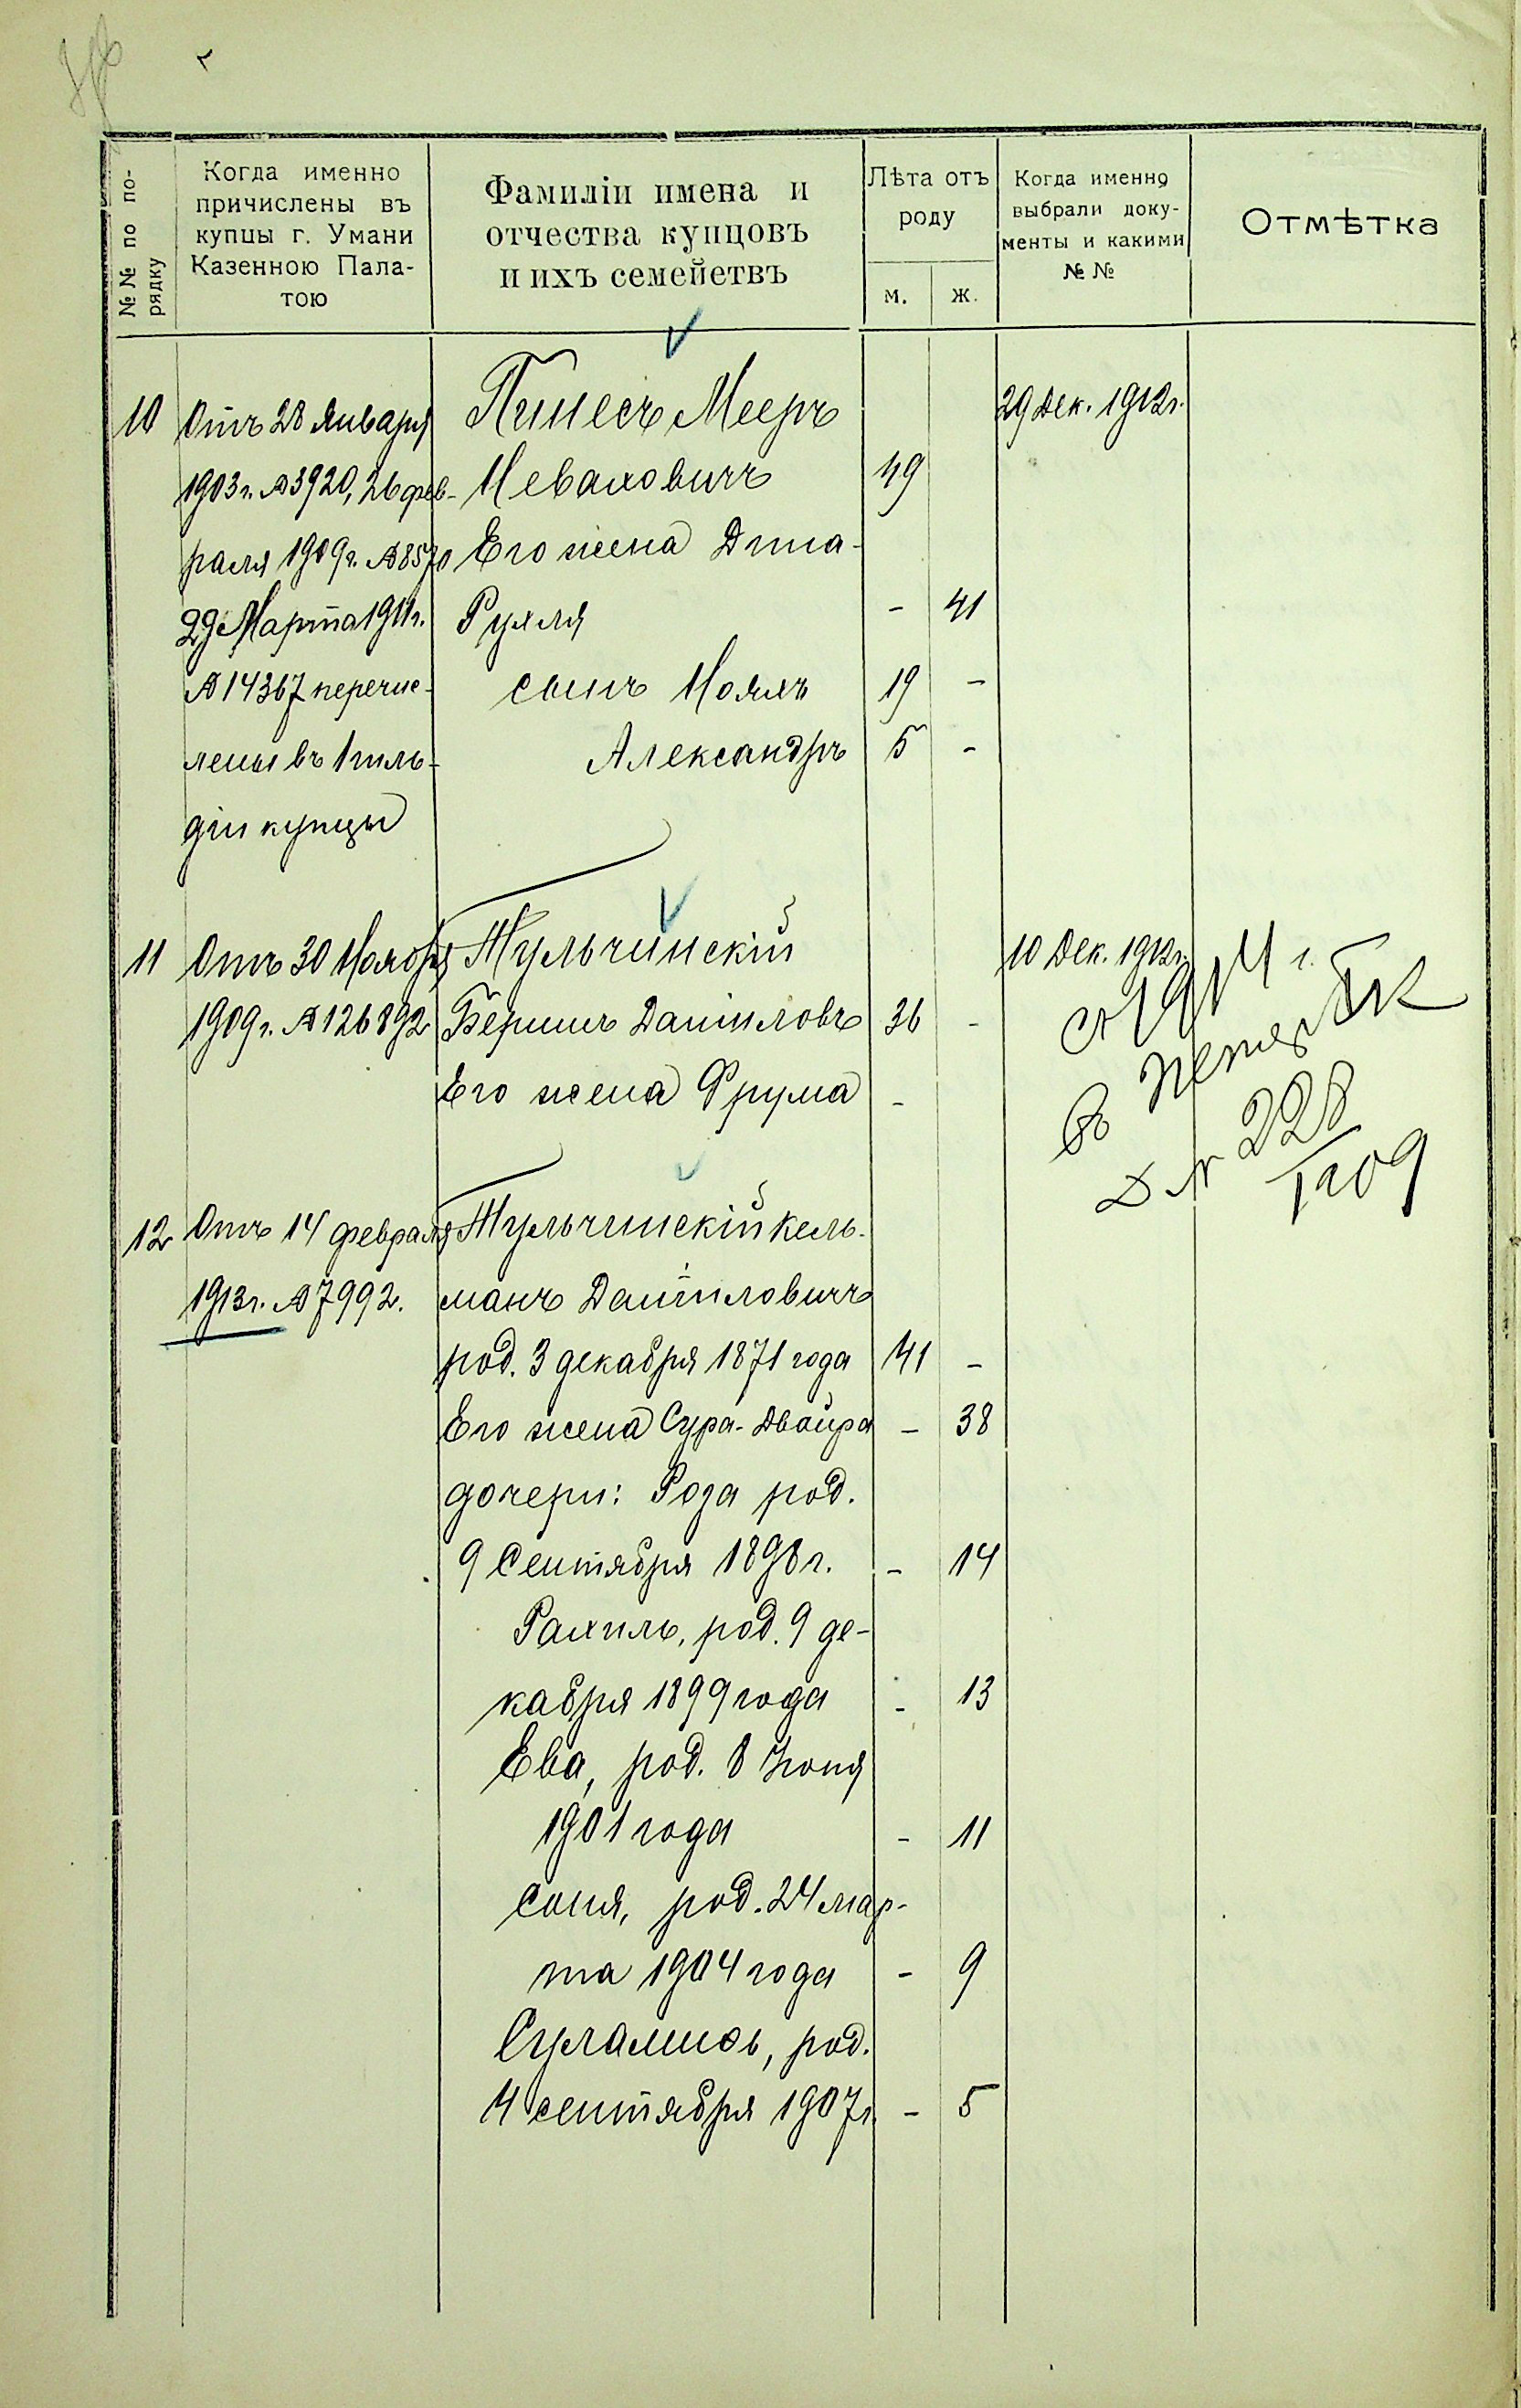 № № по по-
рядку
Когда именно
причислены въ
купцы г. Умани
Казенною Пала-
тою
Фамиліи имена и
отчества купцовъ
и ихъ семействъ
Лѣта отъ
роду
м.
ж.
Когда именно
выбрали доку-
менты и какими
№ №
Отмѣтка
10
Отъ 28 Января
1903 г. № 3920, 26 фев-
раля 1909 г. № 8570
29 Марта 1911 г.
№ 14367 перечис-
лены въ 1 гиль-
діи купцы
Пинесъ Мееръ
Неваховичъ 49
Его жена Дина-
Рухля - 41
сынъ Ноахъ 19 -
Александръ 5 -
29 Дек. 1912 г.
11
Отъ 30 Ноября
1909 г. № 126892
Тульчинскій
Беришъ Даниловъ 36 -
Его жена Фрума -
10 Дек. 1912 г.
съ 1914 г.
въ
Д № 228
1909
12
Отъ 14 февраля
1913 г. № 7992.
Тульчинскій Кель-
манъ Даниловичъ
род. 3 декабря 1871 года 41 -
Его жена Сура-Двойра - 38
дочери: Роза род.
9 Сентября 1898 г. - 14
Рахиль, род. 9 де-
кабря 1899 года - 13
Ева, род. 8 Іюня
1901 года - 11
Соня, род. 24 мар-
та 1904 года - 9
Суламись, род.
4 сентября 1907 г. - 5